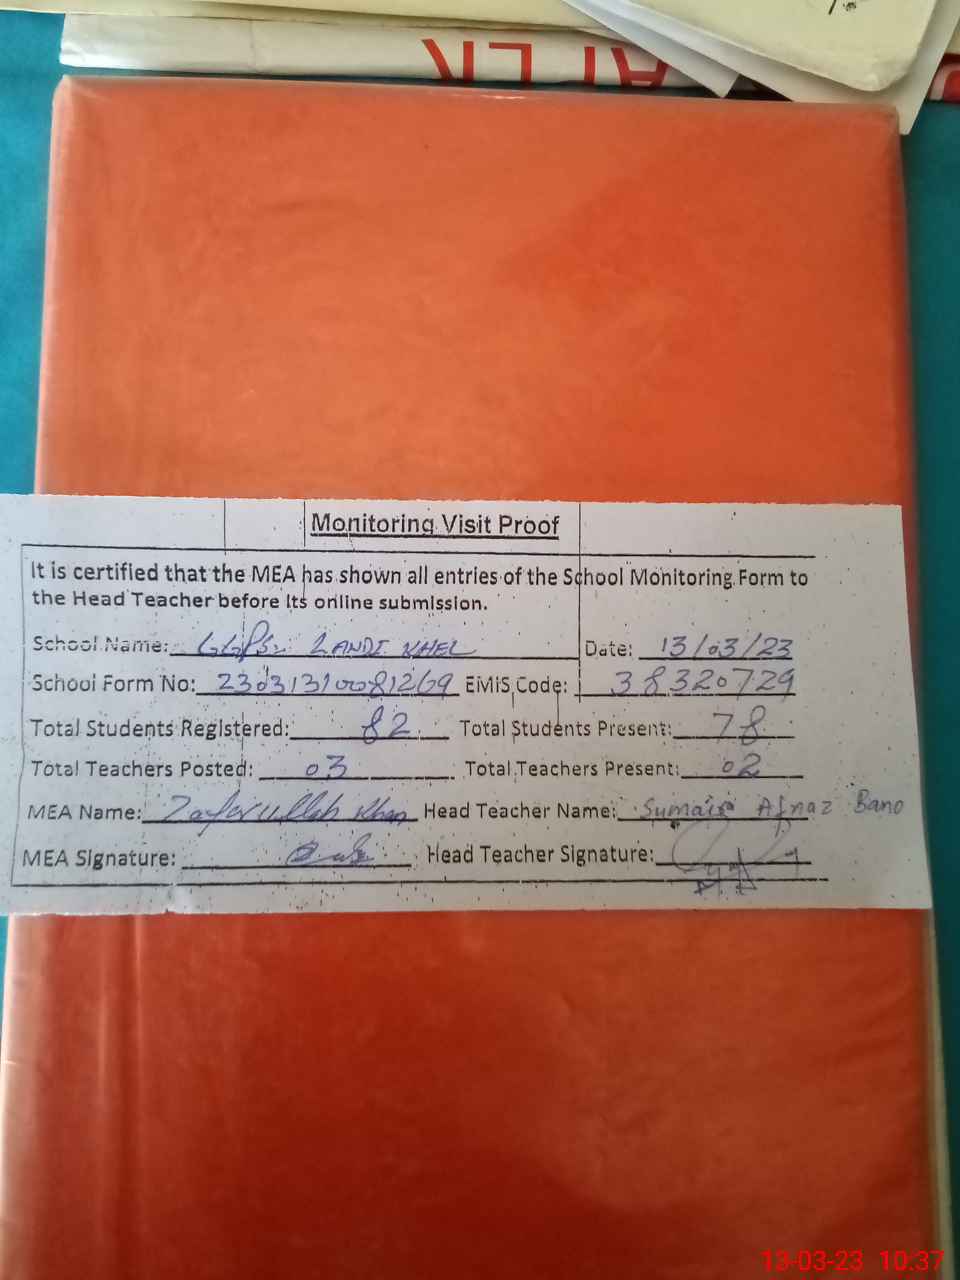 Monitoring Visit Proof
It is certified that the MEA has shown all entries of the School Monitoring Form to
the Head Teacher before its online submission.
School Name: GGPS: LANDI KHEL Date: 13/03/23
School Form No: 23031310081269 EMIS Code: 38320729
Total Students Registered: 82 Total Students Present: 78
Total Teachers Posted: 03 Total Teachers Present: 02
MEA Name: Zafarullah Khan Head Teacher Name: Sumaira Afnaz Bano
MEA Signature: Head Teacher Signature:
13-03-23 10:37